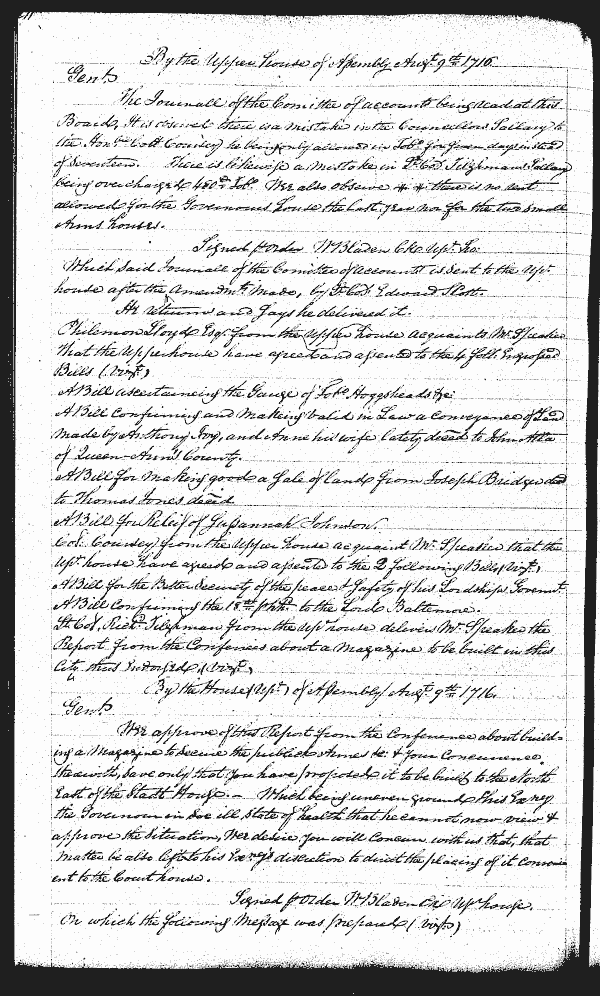 By the Upper house of Assembly Augt. 9th 1716.
Gent.
The Journall of the Comittee of accounts being read at this
Board, It is observed there is a mistake in the Councellors Sallary to
the Honble Coll Coursey he being only allowed in Tobo. for seven days instead
of Seventeen. There is likewise a mistake in Lt. Col. Tilghmans Sallary
being overcharged 480 lb Tobo. We also observe there is no rent
allowed for the Governours house the last year nor for the two small
Arms houses.
Signed p order W Bladen Cl Upr. ho:
Which said Journall of the Comittee of accounts is sent to the Upr.
house after the Amendmt. made, by Lt. Col. Edward Scott.
He returns and says he delivered it.
Philemon Lloyd Esqr. from the Upper house acquaints Mr. Speaker
that the Upper house have agreed and assented to the 4 foll. Engrossed
Bills (vizt.)
A Bill ascertaineing the Gauge of Tobo. Hoggsheads &c
A Bill Confirming and making valid in Law a Conveyance of Land
made by Anthony Ivy, and Anne his wife lately deced to John
of Queen Ann's County.
A Bill for making good a Sale of land from Joseph Bridge deced
to Thomas Jones deced
A Bill for Relief of Sussannah Johnson.
Col. Coursey from the Upper house acquaint Mr. Speaker that the
Upr. house have agreed and assented to the 2 following Bills, (vizt.)
A Bill for the Better Security of the peace & Safety of his Lordships Governt.
A Bill confirming the 18d p hhd. to the Lord Baltemore.
Lt Col. Richd. Tilghman from the Upr house delivers Mr. Speaker the
Report from the Conferrees about a Magazine to be built in this
City thus Endorsed, (vizt.)
(By the House (Upr.) of Assembly Augt. 9th 1716.
Gent.
We approve of this Report from the Conferrence about build-
ing a Magazine to secure the publick Armes &c. & your Concurrence
therewith, save only that you have proposed it to be built to the North
East of the Stadt House. - Which being uneven ground & his Exncy
the Governour in soe ill State of health that he cannot now view &
approve the Situation, We desire you will Concurr with us that, that
matter be also left to his Exncys discretion to direct the placing of it conveni-
ent to the Court house.
Signed p Order W Bladen Cl Upr house.
On which the following Message was prepared (vizt.)